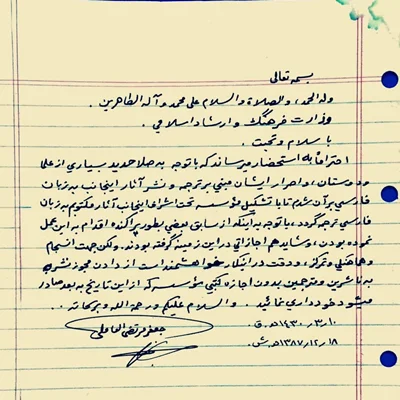 بسمه تعالى
وله الحمد، والصلاة والسلام على محمد وآله الطاهرين.
وزارت فرهنگ و ارشاد اسلامی.
با سلام و تحیت.
احتراماً به استحضار میرساند که با توجه به صلاحدید بسیاری از علما
و دوستان، و اصرار ایشان مبنی بر ترجمه و نشر آثار اینجانب به زبان
فارسی بر آن شدم تا با تشکیل مؤسسه تحت اشراف اینجانب آثار مکتوبم به زبان
فارسی ترجمه گردد، با توجه به اینکه از سابق بعضی بطور پراکنده اقدام به این عمل
نموده بودن، و شاید هم اجازاتی در این زمینه گرفته بودند. ولکن جهت انسجام
و هماهنگی و تمرکز، و دقت در اینکار خواهشمند است از دادن مجوز نشر
به ناشرین و مترجمین بدون اجازه کتبی مؤسسه که از این تاریخ به بعد صادر
میشود خودداری نمائید. والسلام علیکم ورحمة الله وبرکاته.
۱۴۳۰/۳/۱۰ ه.ق. جعفر مرتضی العاملی
۱۳۸۷/۱۲/۱۸ ه.ش.